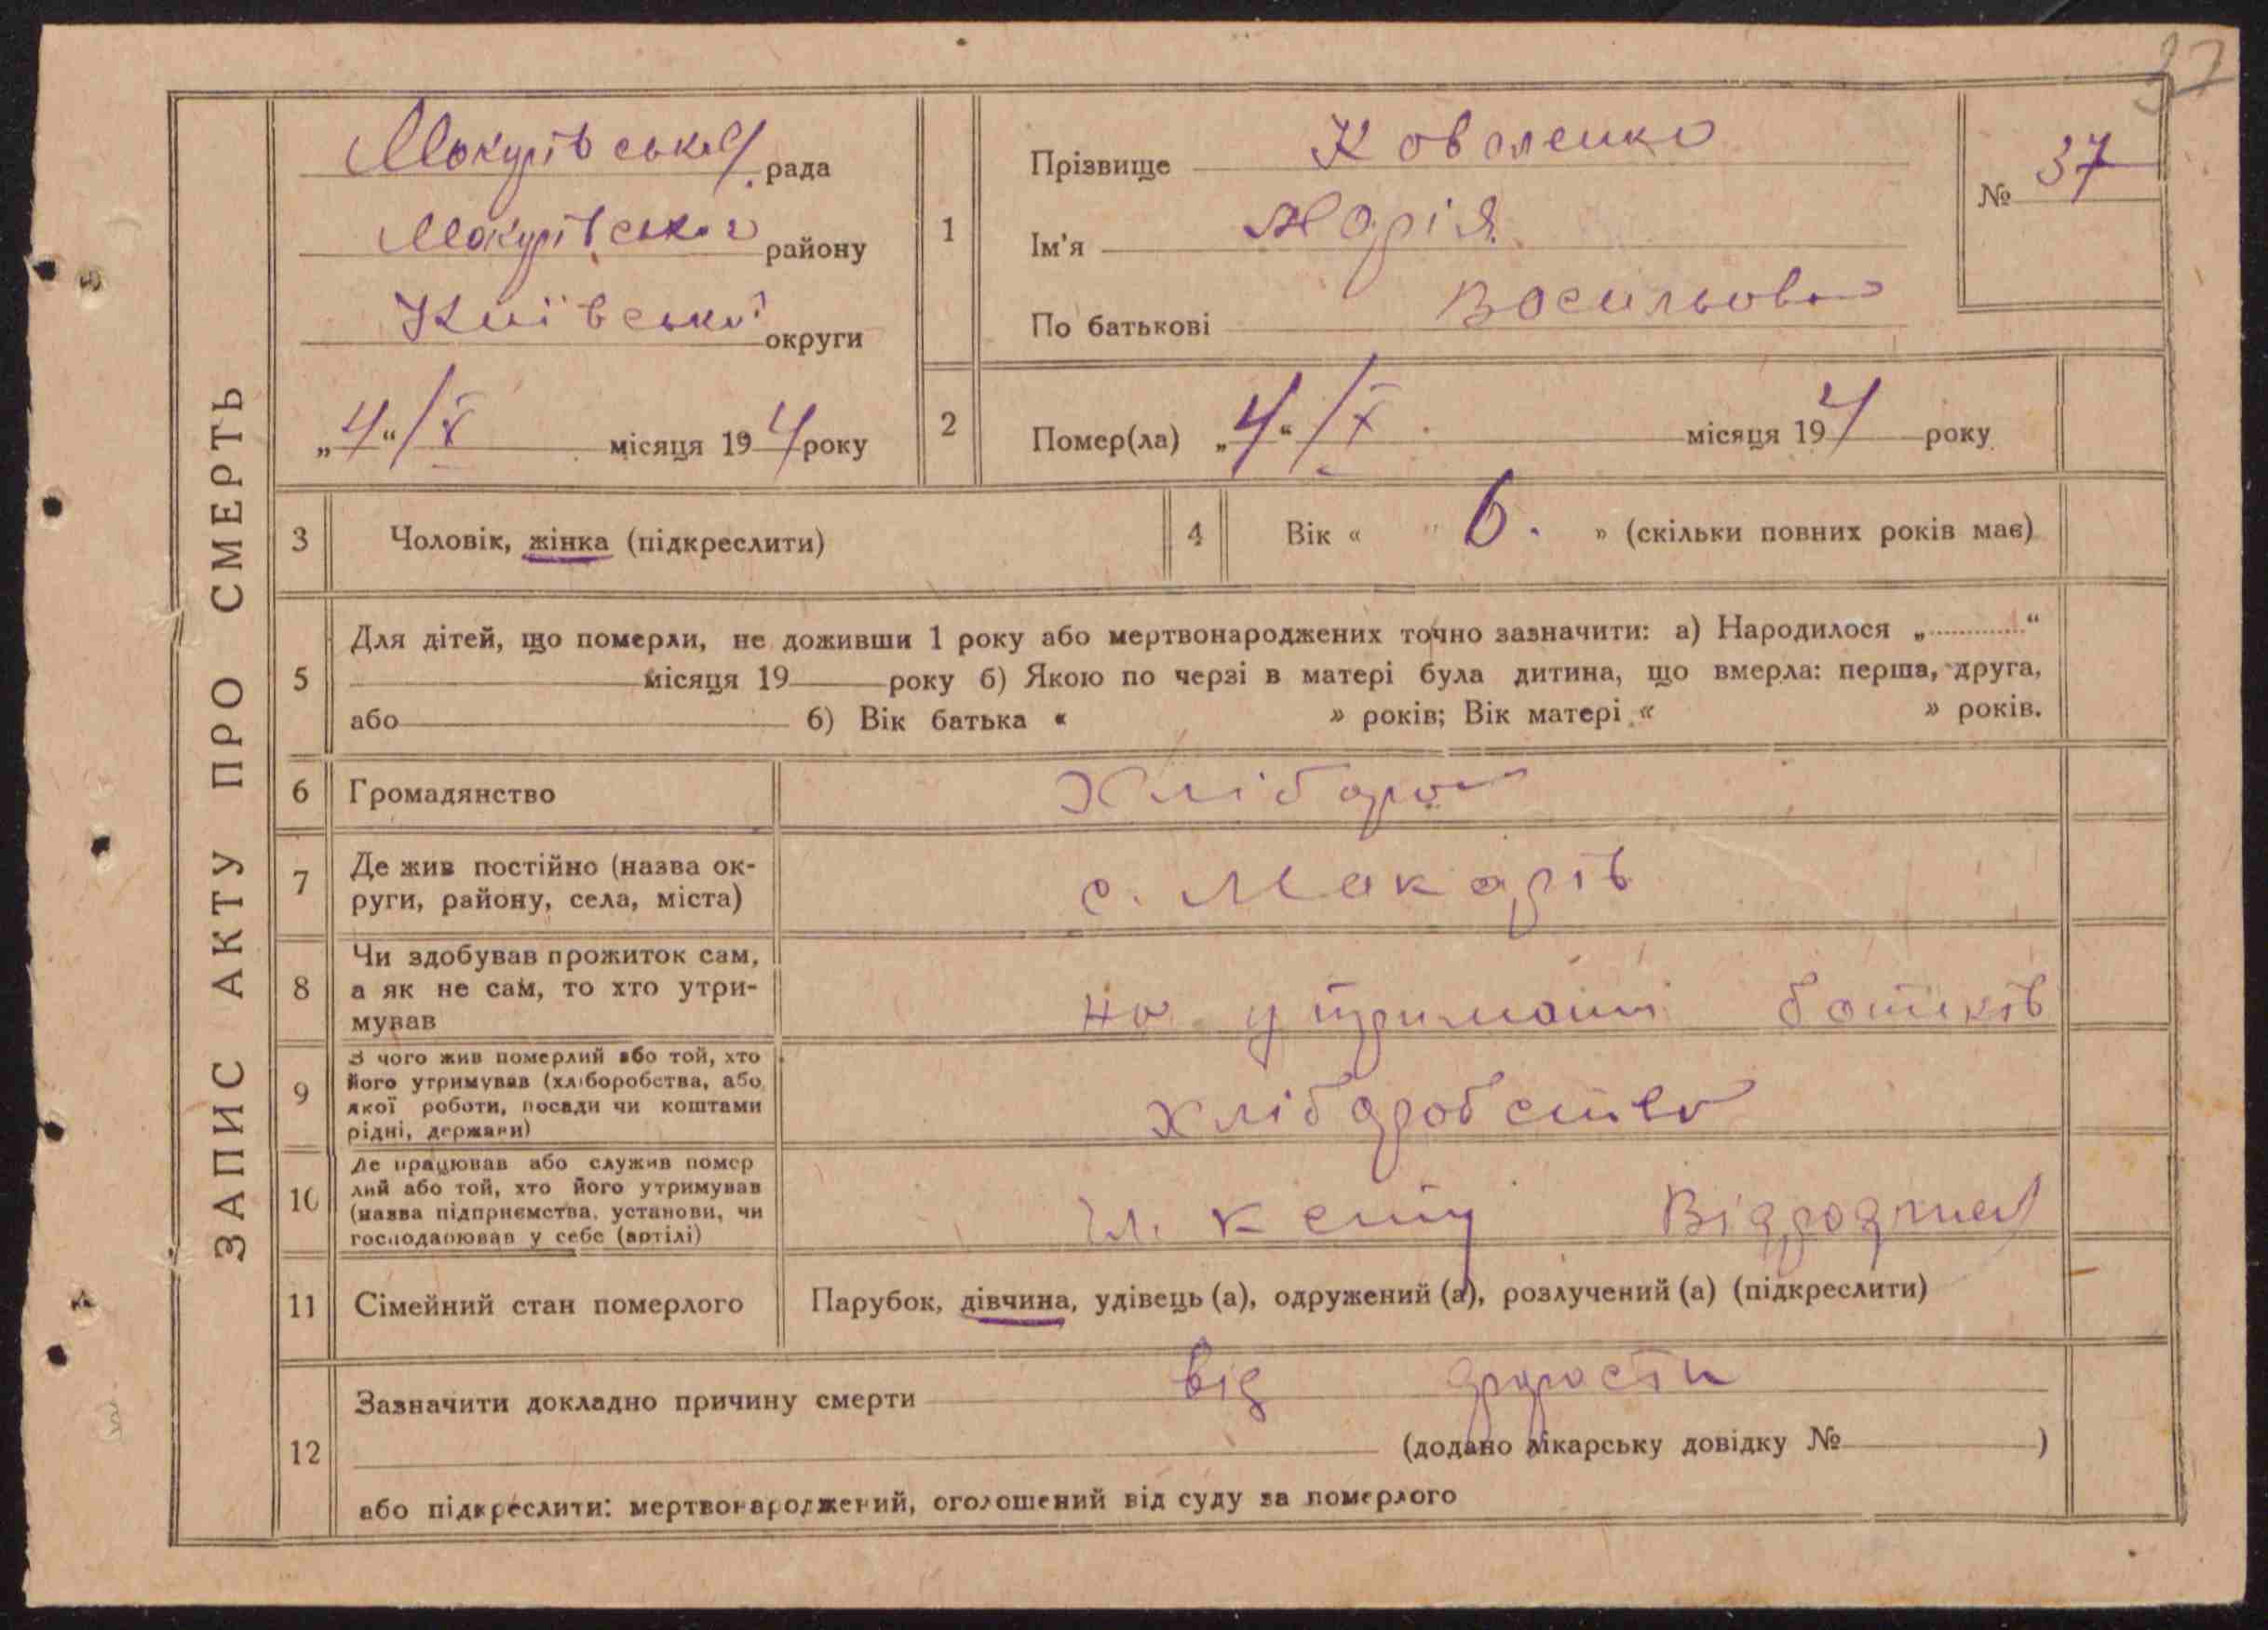 37
ЗАПИС АКТУ ПРО СМЕРТЬ
Макарівська рада
Макарівського району
Київської округи
„4“/X місяця 194 року
1
Прізвище Коваленко
Ім'я Марія
По батькові Васильовна
№ 37
2
Помер(ла) „4“/X місяця 194 року
3 Чоловік, жінка (підкреслити)
4 Вік « 6. » (скільки повних років має)
5
Для дітей, що померли, не доживши 1 року або мертвонароджених точно зазначити: а) Народилося „............“
місяця 19 року б) Якою по черзі в матері була дитина, що вмерла: перша, друга,
або б) Вік батька « » років; Вік матері « » років.
6 Громадянство Хлібороб
7
Де жив постійно (назва ок-
руги, району, села, міста)
с. Макарів
8
Чи здобував прожиток сам,
а як не сам, то хто утри-
мував
на утриманні батьків
9
З чого жив померлий або той, хто
його утримував (хліборобства, або
якої роботи, посади чи коштами
рідні, держави)
хліборобство
10
Де працював або служив помер
лий або той, хто його утримував
(назва підприємства, установи, чи
господарював у себе (артілі)
Відродже
11 Сімейний стан померлого Парубок, дівчина, удівець (а), одружений (а), розлучений (а) (підкреслити)
12
Зазначити докладно причину смерти від
(додано лікарську довідку № )
або підкреслити: мертвонароджений, оголошений від суду за померлого